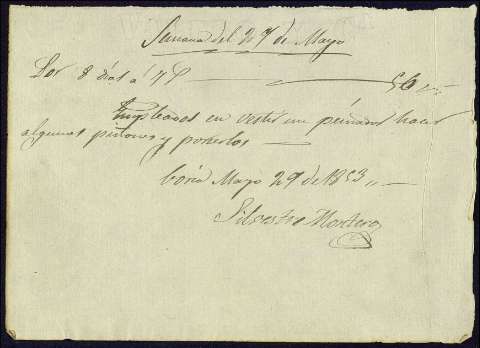 Semana del 29 de Mayo
Por 8 dias á 7 P 56
Empleados en vestir un peinador hacer
algunas pistones y ponerlos
Coria Mayo 29 de 1853
Silvestre Montero